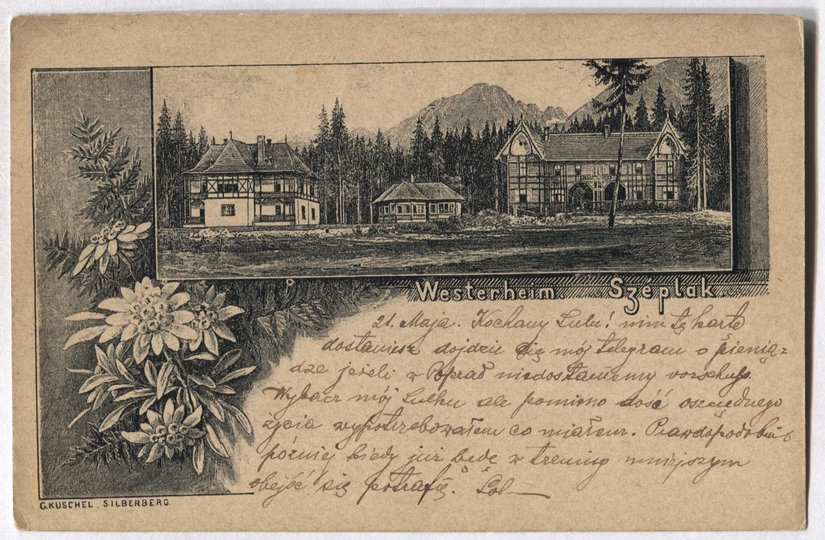 Westerheim. Szeplak.
21. Maja. Kochany Lulu! nim tę kartę
dostaniesz dojdzie Cię mój telegram o pienią-
dze jeżeli w Poprad niedostaniemy
Wybacz mój Lulku ale pomimo dość oszczędnego
życia wypotrzebowałem co miałem. Prawdopodobnie
później kiedy już będę w treningu mniejszym
obejść się potrafię.
G. KUSCHEL, SILBERBERG